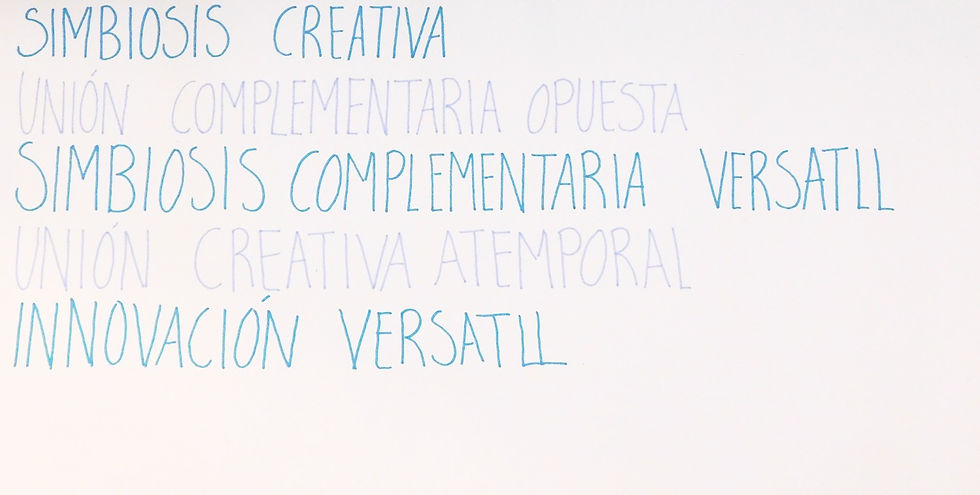 SIMBIOSIS CREATIVA
UNIÓN COMPLEMENTARIA OPUESTA
SIMBIOSIS COMPLEMENTARIA VERSATIL
UNIÓN CREATIVA ATEMPORAL
INNOVACIÓN VERSATIL